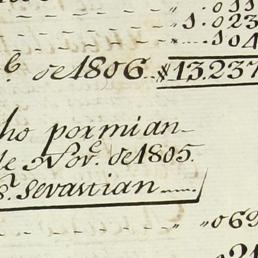 „. 011
„1.023
„... 104
b. de 1806. $13.237
ho por mi an-
de Nov.e de 1805.
S.r Sevastian
„069